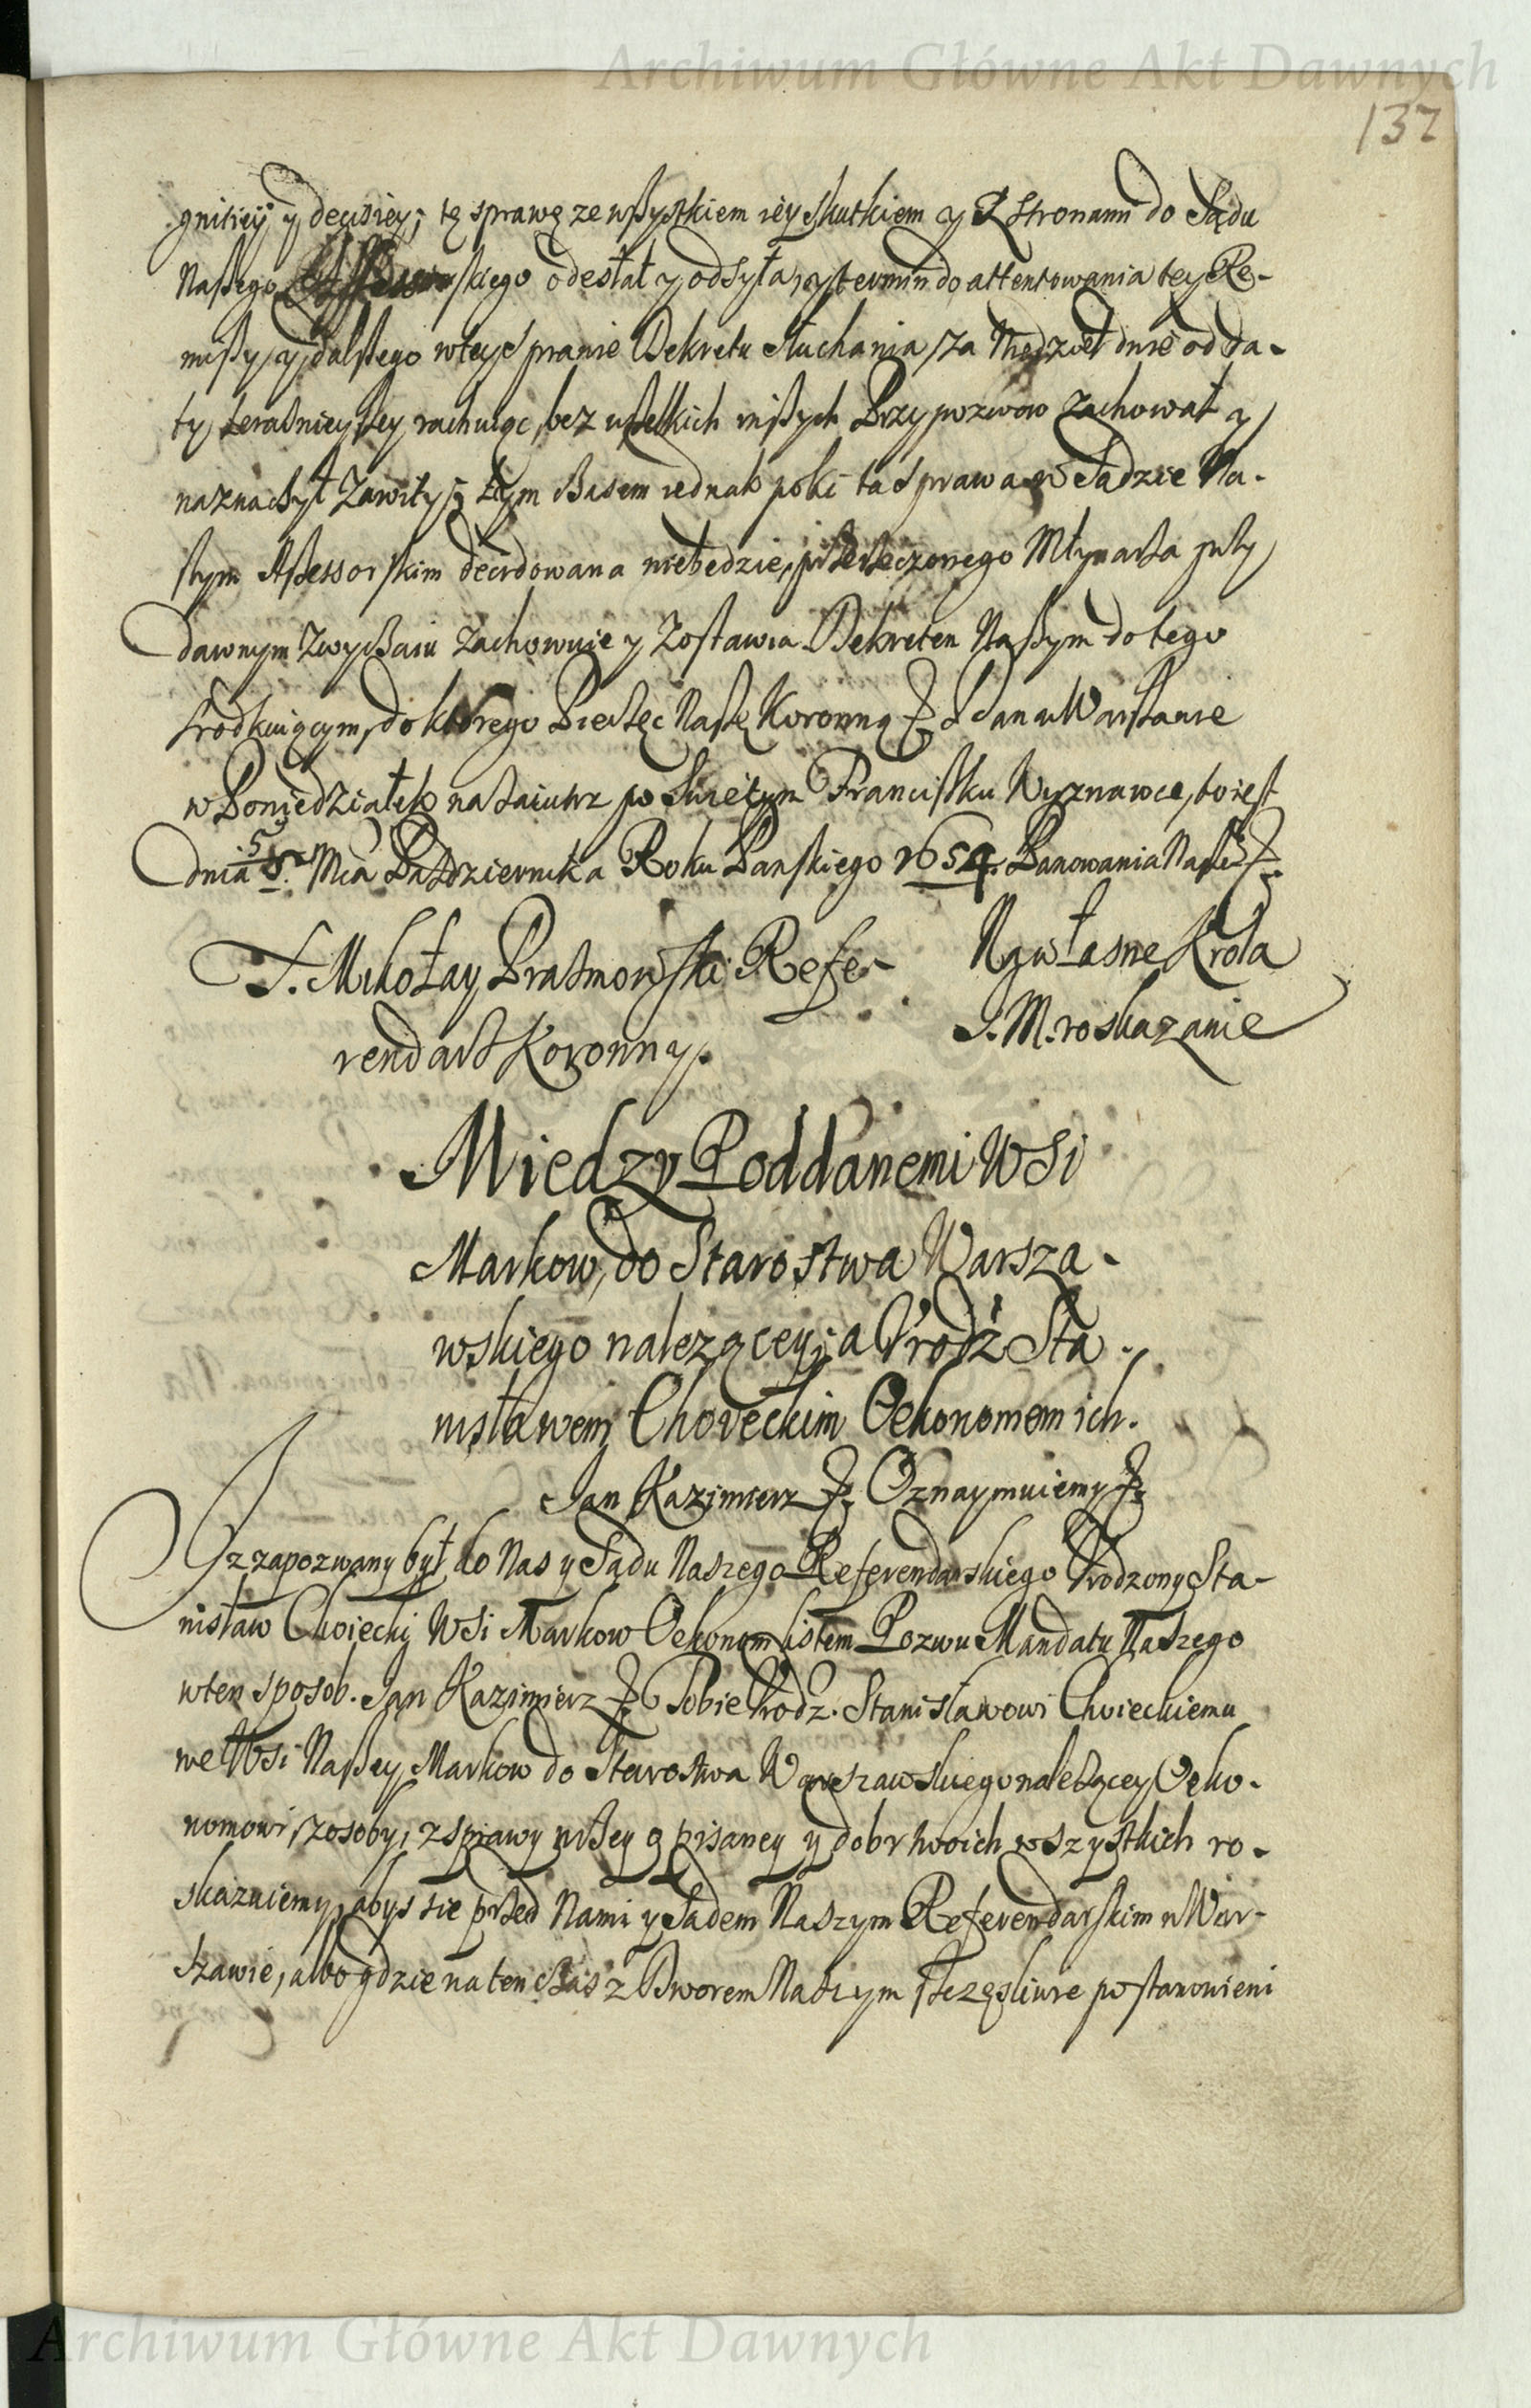 Archiwum Główne Akt Dawnych
137
gnitiey y decisiey; tę sprawę ze wszystkiem iey skutkiem y z stronami do Sądu
Naszego Assessorskiego odesłał y odsyła, y termin do attentowania tey Re-
missy, y dalszego w tey sprawie Dekretu słuchania, za Niedziel dwie od da-
ty teraznieyszey rachuiąc, bez wszelkich inszych Przypozwow zachował y
naznaczył Zawity; tym czasem iednak poki ta sprawa w Sądzie Na-
szym Assessorskim decidowana niebędzie, przerzeczonego Młynarza przy
dawnym Zwyczaiu zachowuie y Zostawia Dekretem Naszym do tego
srodkuiącym, do ktorego Pieczęć Naszę Koronną &c. Dan w Warszawie
w Poniedziałek nazaiutrz po Swiętym Franciszku Wyznawce, to iest
dnia 5. Mca Pazdziernika Roku Panskiego 1654. Panowania Nasze &c.
F. Mikołay Prazmowski Refe-
rendarz Koronny.
Na własne Krola
J. M. roskazanie
Miedzy Poddanemi Wsi
Markow, do Starostwa Warsza-
wskiego nalezącey; a Urodź Sta-
nisławem Choieckim Oekonomem ich.
Jan Kazimierz &c. Oznaymuiemy &c.
Iz zapozwany był do Nas y Sądu Naszego Referendarskiego Urodzony Sta-
nisław Choiecky Wsi Markow Oekonom listem Pozwu Mandatu Naszego
w ten sposob. Jan Kazimierz &c. Tobie Urodz. Stanisławowi Choieckiemu
we Wsi Naszey Markow do Starostwa Warszawskiego nalezącey Oeko-
nomowi, z osoby, z sprawy nizey opisaney y dobr twoich wszystkich ro-
skazuiemy, abys sie przed Nami y Sądem Naszym Referendarskim w War-
szawie, albo gdzie na ten czas z Dworem Naszym szczęsliwie postanowieni
Archiwum Główne Akt Dawnych